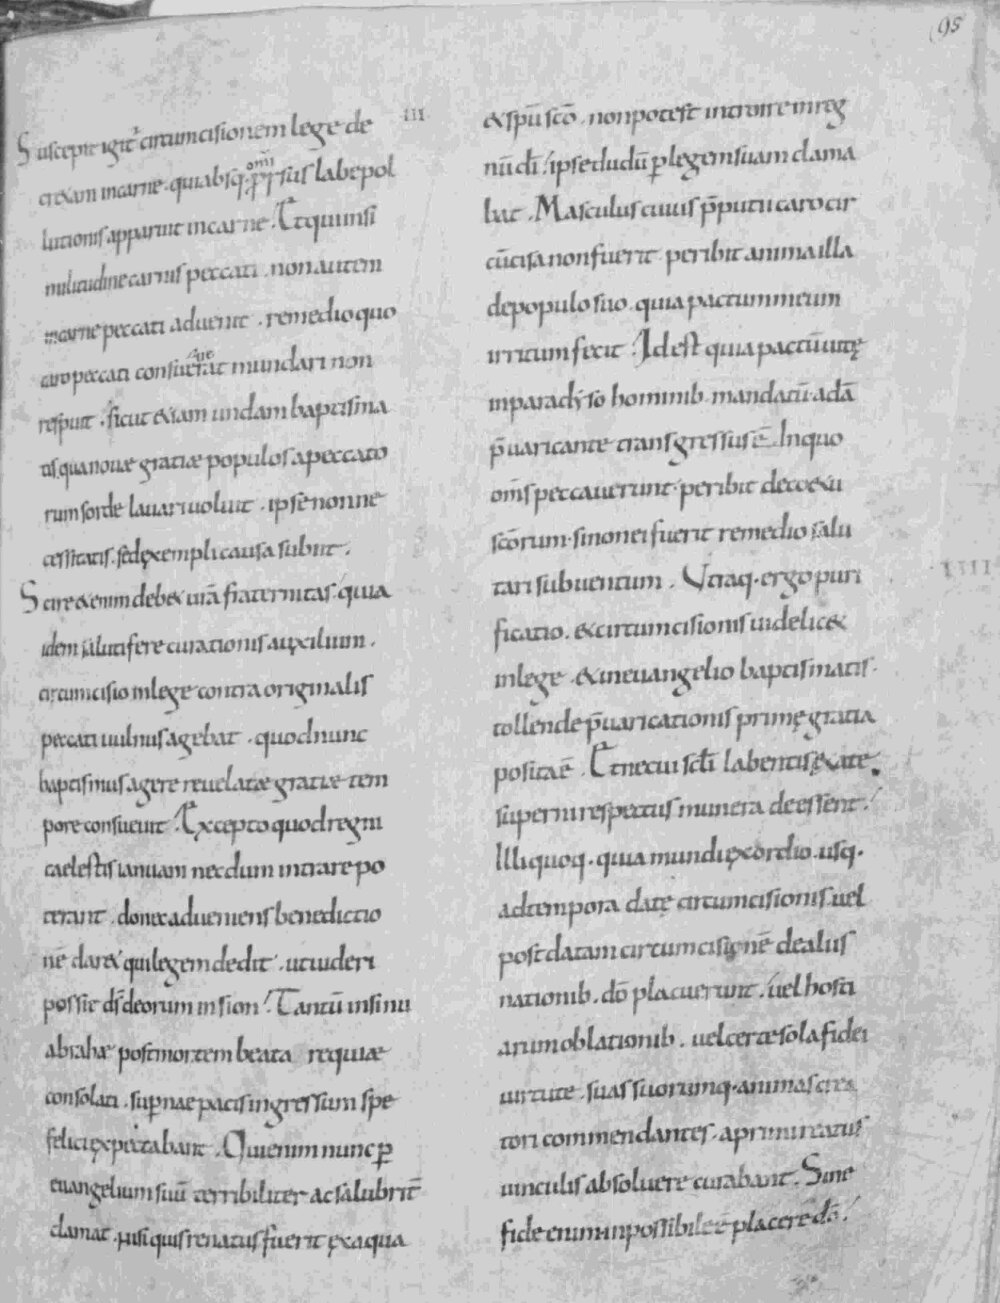 95
III
Suscepit igit̄ circumcisionem lege de
cretam in carne. quiabsq; omni p̄rsus labe pol
lutionis apparuit in carne. Et qui in si
militudine carnis peccati. non autem
in carne peccati aduenit. remedio quo
caro peccati consueuerat mundari non
respuit. sicut & iam undam baptisma
tis. qua nouae gratiae populos a peccato
rum sorde lauari uoluit. ipse non ne
cessitatis. sed exempli causa subiit.
Scire & enim deb& ur̄a fraternitas. quia
idem salutifere curationis auxilium.
circumcisio in lege contra originalis
peccati uulnus agebat. quod nunc
baptismus agere reuelatae gratiae tem
pore consueuit. Excepto quod regni
caelestis ianuam necdum intrare po
terant. donec adueniens benedictio
nē dar& qui legem dedit. ut uideri
possit ds̄ deorum in sion. Tantū in sinu
abrahae post mortem beata requiae
consolati. sup̄nae pacis ingressum spe
felici expectabant. Qui enim nunc p̄
euangelium suū terribiliter ac salubrit̄
clamat. nisi quis renatus fuerit ex aqua
& spū scō. non potest introire in reg
nū dī. ipse dudū p̄ legem suam clama
bat. Masculus cuius p̄putii caro cir
cūcisa non fuerit. peribit anima illa
de populo suo. quia pactum meum
irritum fecit. Id est quia pactū uitę
in paradyso hominib. mandatū. adā
p̄uaricante transgressus ē. In quo
oms̄ peccauerunt. peribit de coetu
scōrum. si non ei fuerit remedio salu
tari subuentum. Vtraq. ergo puri
IIII
ficatio. & circumcisionis uidelic&
in lege. & in euangelio baptismatis.
tollende p̄uaricationis primę gratia
posita ē. Et ne cuiscd̄i labentis ętate
superni respectus munera deessent.
Illi quoq. qui a mundi exordio. usq.
ad tempora datę circumcisionis. uel
post datam circumcisionē de aliis
nationib. dō placuerunt. uel hosti
arum oblationib. uel certae sola fidei
uirtute. suas suorumq. animas crea
tori commendantes. a primi reatus
uinculis absoluere curabant. Sine
fide enim inpossibile ē placere dō.